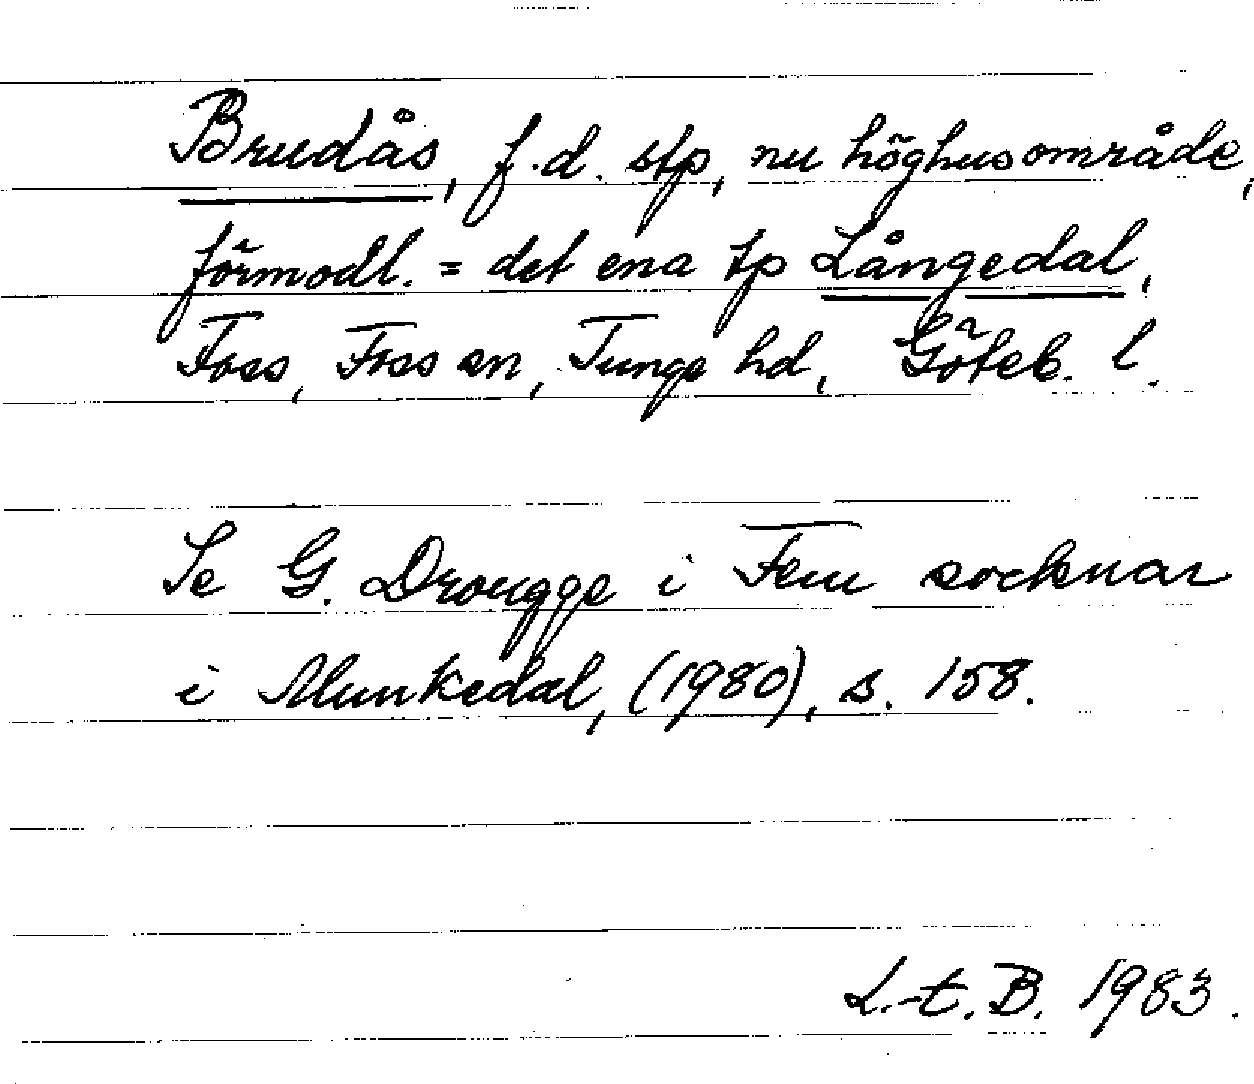 Brudås, f.d. stp, nu höghusområde,
förmodl. = det ena tp Långedal,
Foss, Foss sn, Tunge hd, Göteb. l.
Se G. Drougge i Fem socknar
i Munkedal, (1980), s. 158.
L.-t. B. 1983.